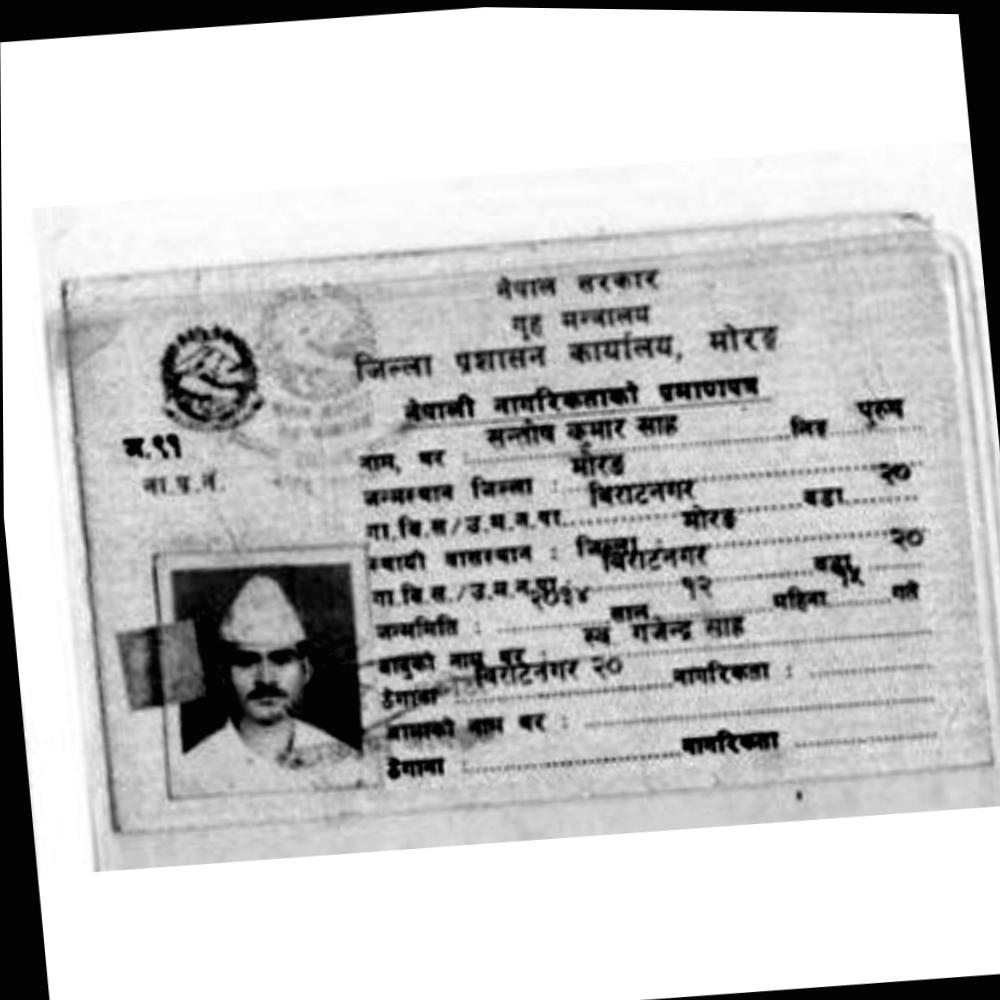 नेपाल सरकार
गृह मन्त्रालय
जिल्ला प्रशासन कार्यालय, मोरङ
नेपाली नागरिकताको प्रमाणपत्र
म.११
ना.प्र.नं.
नाम, थर : सन्तोष कुमार साह लिङ्ग पुरुष
जन्मस्थान जिल्ला : मोरङ
गा.वि.स/उ.म.न.पा. बिराटनगर वडा २०
स्थायी वासस्थान : जिल्ला : मोरङ
गा.वि.स./उ.म.न.पा : बिराटनगर वडा २०
जन्ममिति : साल १२ महिना १५ गते
बाबुको नाम थर : स्व गजेन्द्र साह
ठेगाना बिराटनगर २० नागरिकता :
आमाको नाम थर :
ठेगाना : नागरिकता